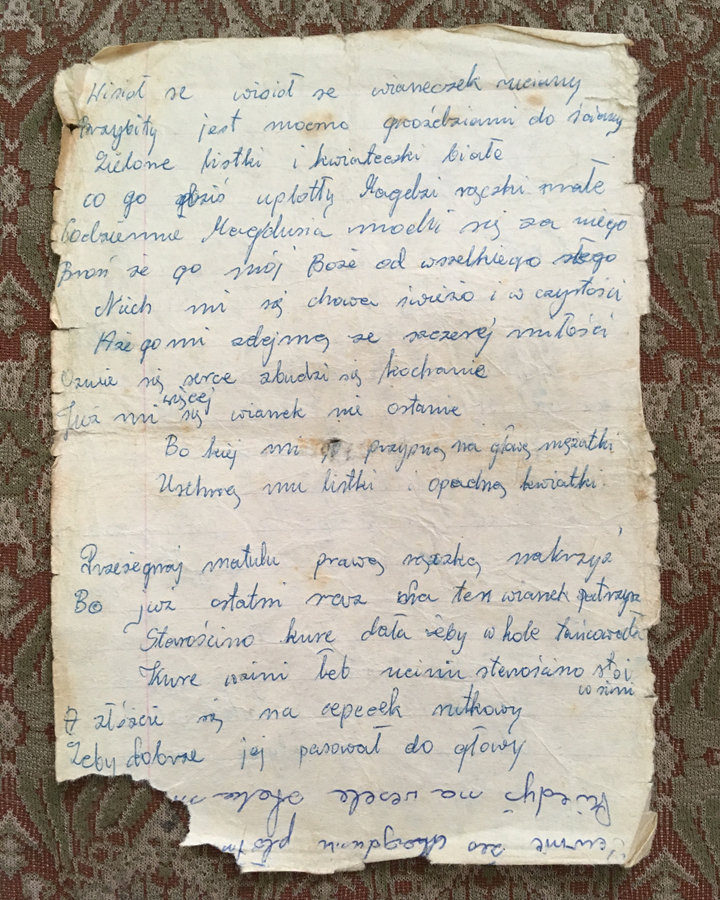 Wisioł se wisioł se wianeczek ruciany
Przybity jest mocno gwoździami do ściany
Zielone listki i kwiateczki białe
co go uplotły Magdzi rączki małe
Codziennie Magdusia modli się za niego
Broń ze go mój Boże od wszelkiego złego
Niech mi się chowa świeżo i w czystości
Aże go mi zdejmą ze szczerej miłości
Ozwie się serce zbudzi się kochanie
Już mi się więcej wianek nie ostanie
Bo kiej mi go przypną na głowę mężatki
Uschną mu listki i opadną kwiatki.
Przeżegnaj matulu prawą rączką nakrzyż
Bo już ostatni raz na ten wianek patrzysz
Starościno kurę dała żeby w kole tańcowała
Kura łeb starościno stoi w sini
A złóżcie się na cepecek rutkowy
Żeby dobrze jej pasował do głowy
Kiedyś na wesele
że